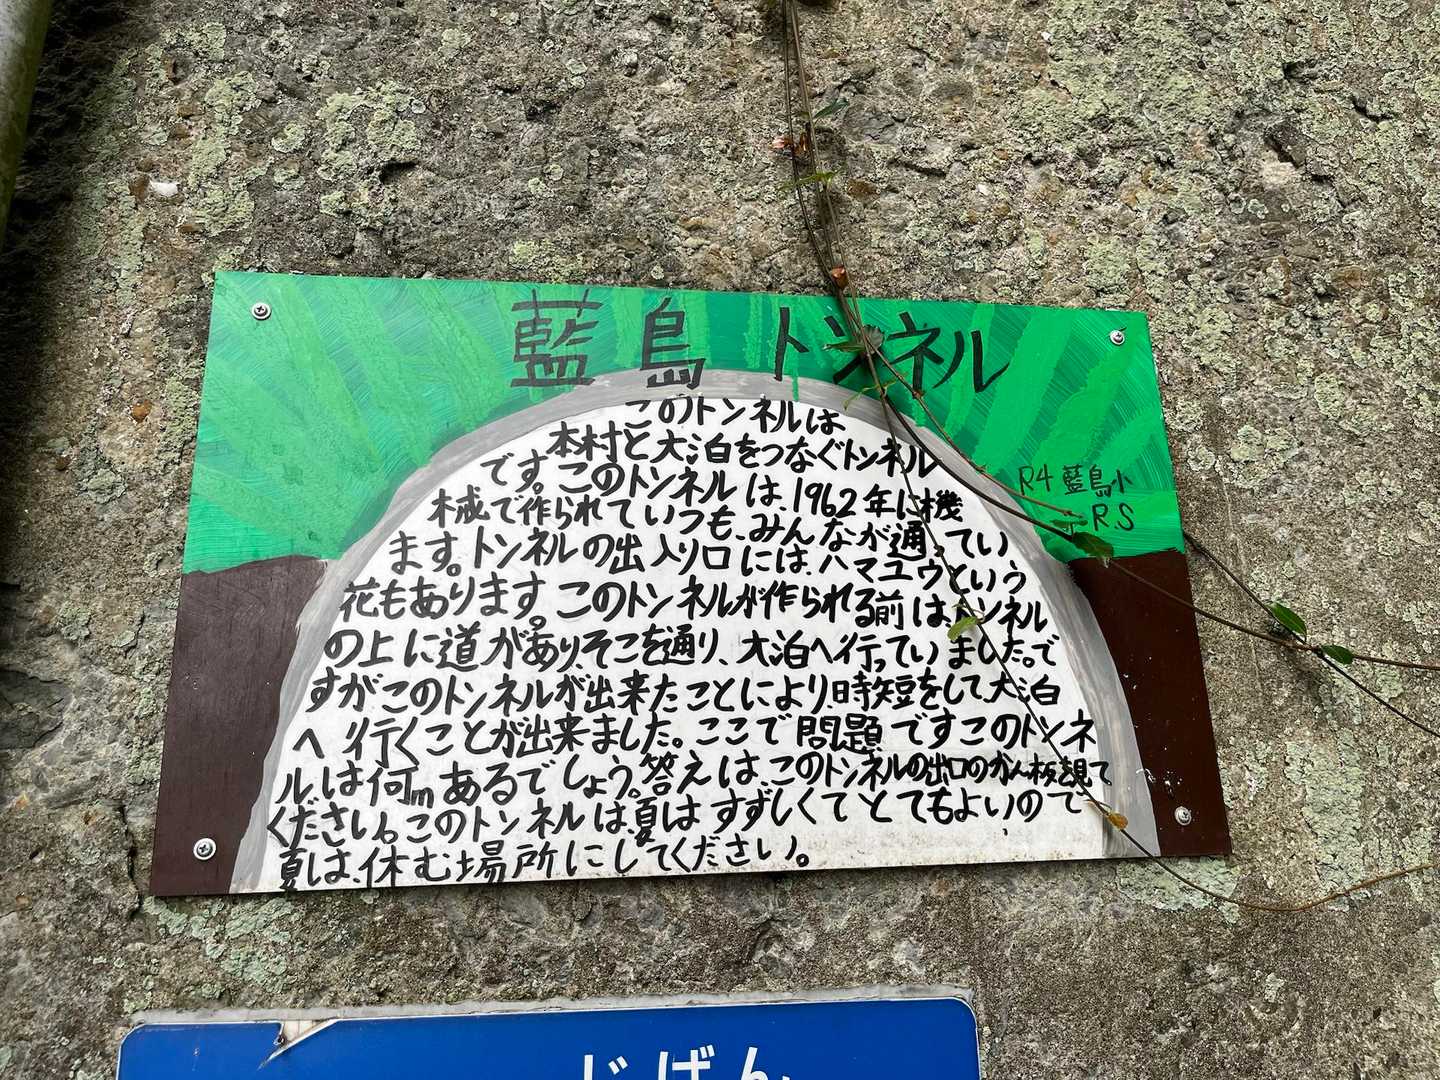 藍島トンネル
このトンネルは
本村と大泊をつなぐトンネル
です。このトンネルは、1962年に機
械で作られていつも、みんなが通ってい
ます。トンネルの出入り口には、ハマユウという
花もあります。このトンネルが作られる前は、トンネル
の上に道があり、そこを通り、大泊へ行っていました。で
すがこのトンネルが出来たことにより、時短をして大泊
へ行くことが出来ました。ここで問題ですこのトンネ
ルは何mあるでしょう。答えは、このトンネルの出口のかん板を見て
ください。このトンネルは、夏はすずしくてとてもよいので
夏は、休む場所にしてください。
R4 藍島小
R.S
じばん